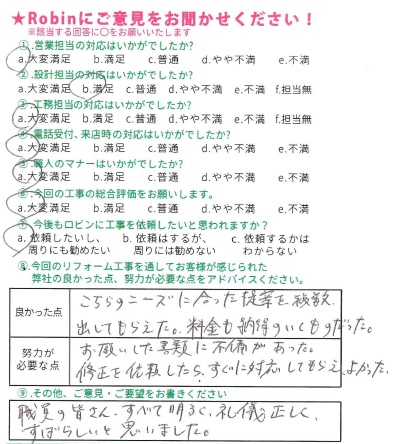 ★Robinにご意見をお聞かせください！
※該当する回答に○をお願いいたします
①.営業担当の対応はいかがでしたか?
a.大変満足 b.満足 c.普通 d.やや不満 e.不満
②.設計担当の対応はいかがでしたか?
a.大変満足 b.満足 c.普通 d.やや不満 e.不満 f.担当無
③.工務担当の対応はいかがでしたか?
a.大変満足 b.満足 c.普通 d.やや不満 e.不満 f.担当無
④.電話受付、来店時の対応はいかがでしたか?
a.大変満足 b.満足 c.普通 d.やや不満 e.不満
⑤.職人のマナーはいかがでしたか?
a.大変満足 b.満足 c.普通 d.やや不満 e.不満
⑥.今回の工事の総合評価をお願いします。
a.大変満足 b.満足 c.普通 d.やや不満 e.不満
⑦.今後もロビンに工事を依頼したいと思われますか?
a.依頼したいし、 b.依頼はするが、 c.依頼するかは
周りにも勧めたい 周りには勧めない わからない
⑧.今回のリフォーム工事を通してお客様が感じられた
弊社の良かった点、努力が必要な点をアドバイスください。
良かった点
こちらのニーズに合った提案を複数
出してもらえた。料金も納得のいくものだった。
努力が
必要な点
お願いした書類に不備があった。
修正を依頼したら、すぐに対応してもらえ、よかった。
⑨.その他、ご意見・ご要望をお書きください
職員の皆さん、すべて明るく、礼儀正しく、
すばらしいと思いました。